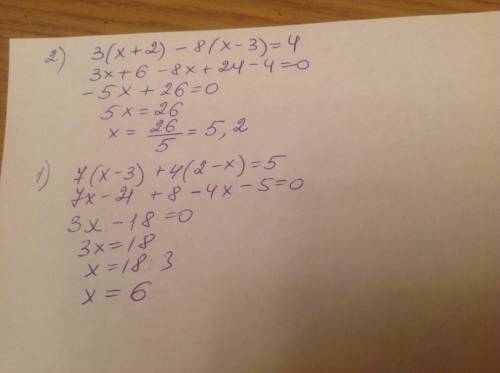 2) 3(x+2) - 8(x-3)=4
3x+6 -8x+24-4=0
-5x+26=0
5x=26
x= 26/5 = 5,2
1) 7(x-3) +4(2-x)=5
7x-21 +8-4x-5=0
3x-18=0
3x=18
x=18:3
x=6